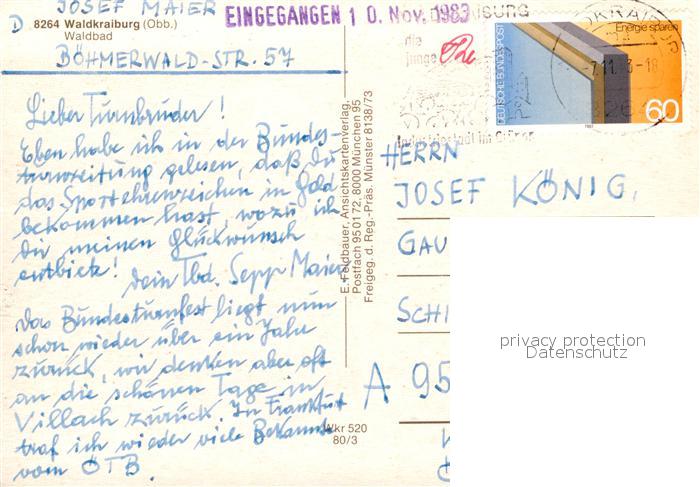 JOSEF MAIER
D 8264 Waldkraiburg (Obb.)
Waldbad
BÖHMERWALD-STR. 57
EINGEGANGEN 10. Nov. 1983
die
junge
Industriestadt im Grünen
-7.11.83-18
DEUTSCHE BUNDESPOST
Energie sparen
60
Lieber Turnbruder!
Eben habe ich in der Bundes-
turnzeitung gelesen, daß Du
das Sportehrenzeichen in Gold
bekommen hast, wozu ich
Dir meinen Glückwunsch
entbiete!
Dein Tbd. Sepp Maier
Das Bundesturnfest liegt nun
schon wieder über ein Jahr
zurück, wir denken aber oft
an die schönen Tage in
Villach zurück. In Frankfurt
traf ich wieder viele Bekannte
vom ÖTB.
E. Feldbauer, Ansichtskartenverlag,
Postfach 950172, 8000 München 95
Freigeg. d. Reg.-Präs. Münster 8138/73
Wkr 520
80/3
HERRN
JOSEF KÖNIG,
GAU
SCHI
A 95
privacy protection
Datenschutz